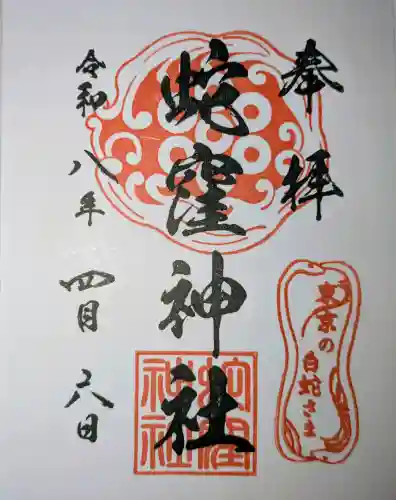 奉拝
蛇窪神社
令和八年四月六日
東京の
白蛇さま
蛇窪
神社